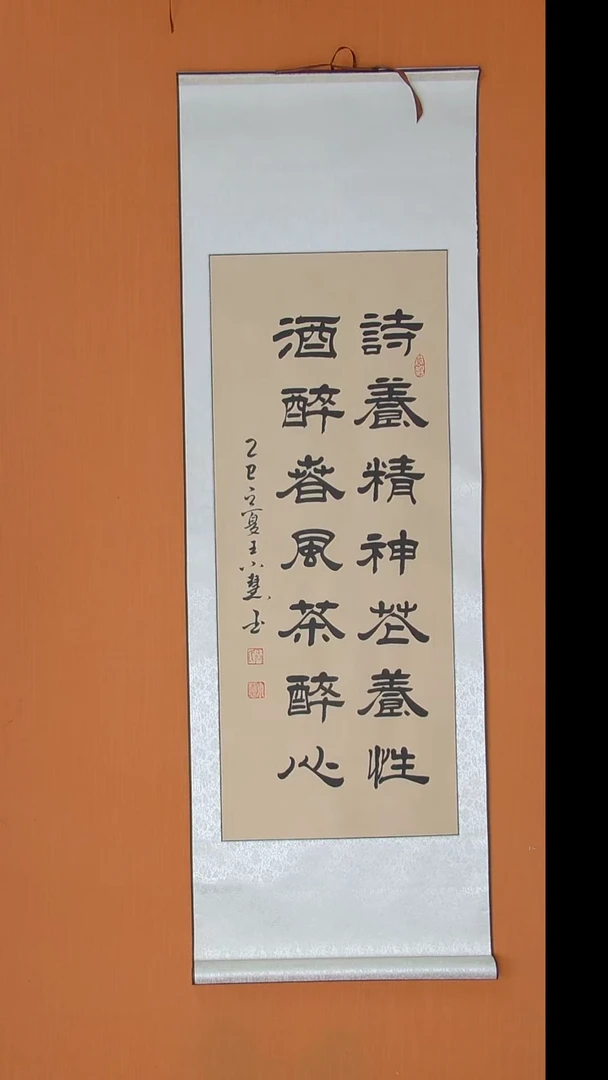 詩養精神花養性
酒醉春風茶醉心
乙巳立夏王小慧書